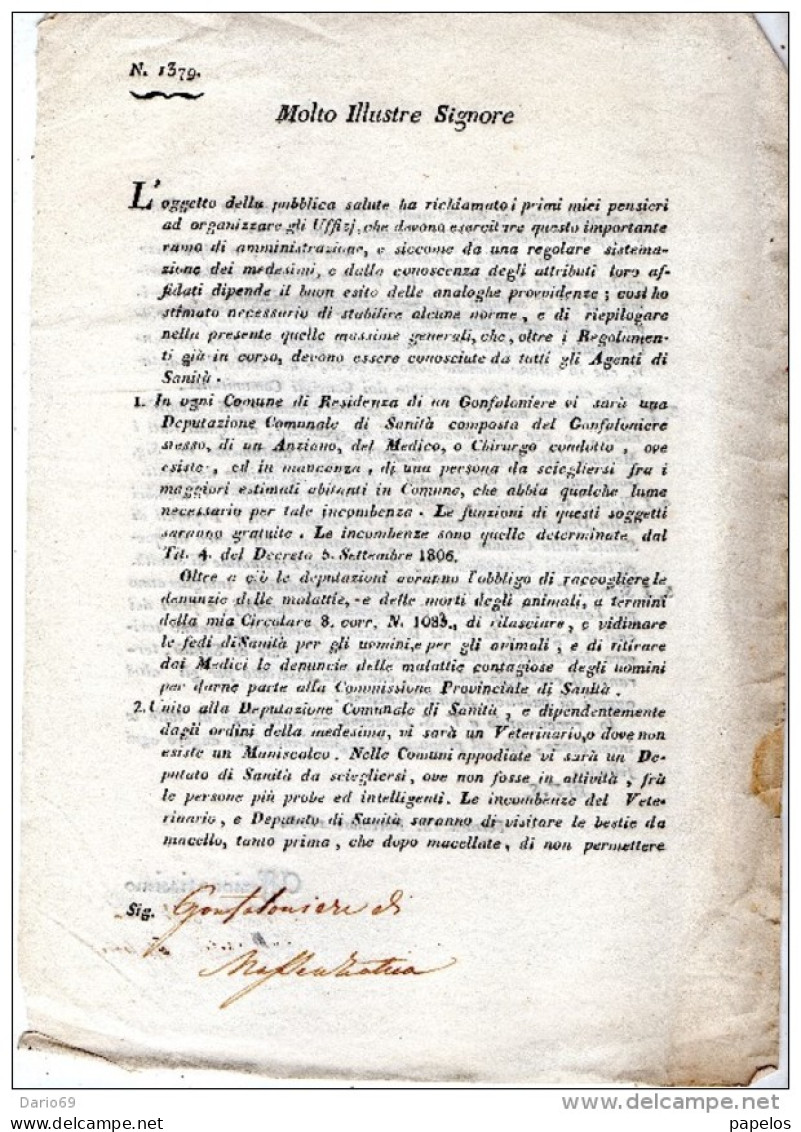 N. 1379.
Molto Illustre Signore
L'oggetto della pubblica salute ha richiamato i primi miei pensieri
ad organizzare gli Uffizj, che devono esercitare questo importante
ramo di amministrazione, e siccome da una regolare sistema-
zione dei medesimi, e dalla conoscenza degli attributi loro af-
fidati dipende il buon esito delle analoghe provvidenze; così ho
stimato necessario di stabilire alcune norme, e di riepilogare
nella presente quelle massime generali, che, oltre i Regolamen-
ti già in corso, devono essere conosciute da tutti gli Agenti di
Sanità.
1. In ogni Comune di Residenza di un Gonfaloniere vi sarà una
Deputazione Comunale di Sanità composta del Gonfaloniere
stesso, di un Anziano, del Medico, o Chirurgo condotto, ove
esiste, ed in mancanza, di una persona da sciegliersi fra i
maggiori estimati abitanti in Comune, che abbia qualche lume
necessario per tale incombenza. Le funzioni di questi soggetti
saranno gratuite. Le incombenze sono quelle determinate dal
Tit. 4. del Decreto 5. Settembre 1806.
Oltre a ciò le deputazioni avranno l'obbligo di raccogliere le
denunzie delle malattie, e delle morti degli animali, a termini
della mia Circolare 8. corr. N. 1083., di rilasciare, e vidimare
le fedi di Sanità per gli uomini, e per gli animali, e di ritirare
dai Medici le denuncie delle malattie contagiose degli uomini
per darne parte alla Commissione Provinciale di Sanità.
2. Unito alla Deputazione Comunale di Sanità, e dipendentemente
dagli ordini della medesima, vi sarà un Veterinario, o dove non
esiste un Maniscalco. Nelle Comuni appodiate vi sarà un De-
putato di Sanità da sciegliersi, ove non fosse in attività, frà
le persone più probe ed intelligenti. Le incombenze del Vete-
rinario, e Deputato di Sanità saranno di visitare le bestie da
macello, tanto prima, che dopo macellate, di non permettere
Sig. Gonfaloniere di
Dario69
delcampe.net
papelos